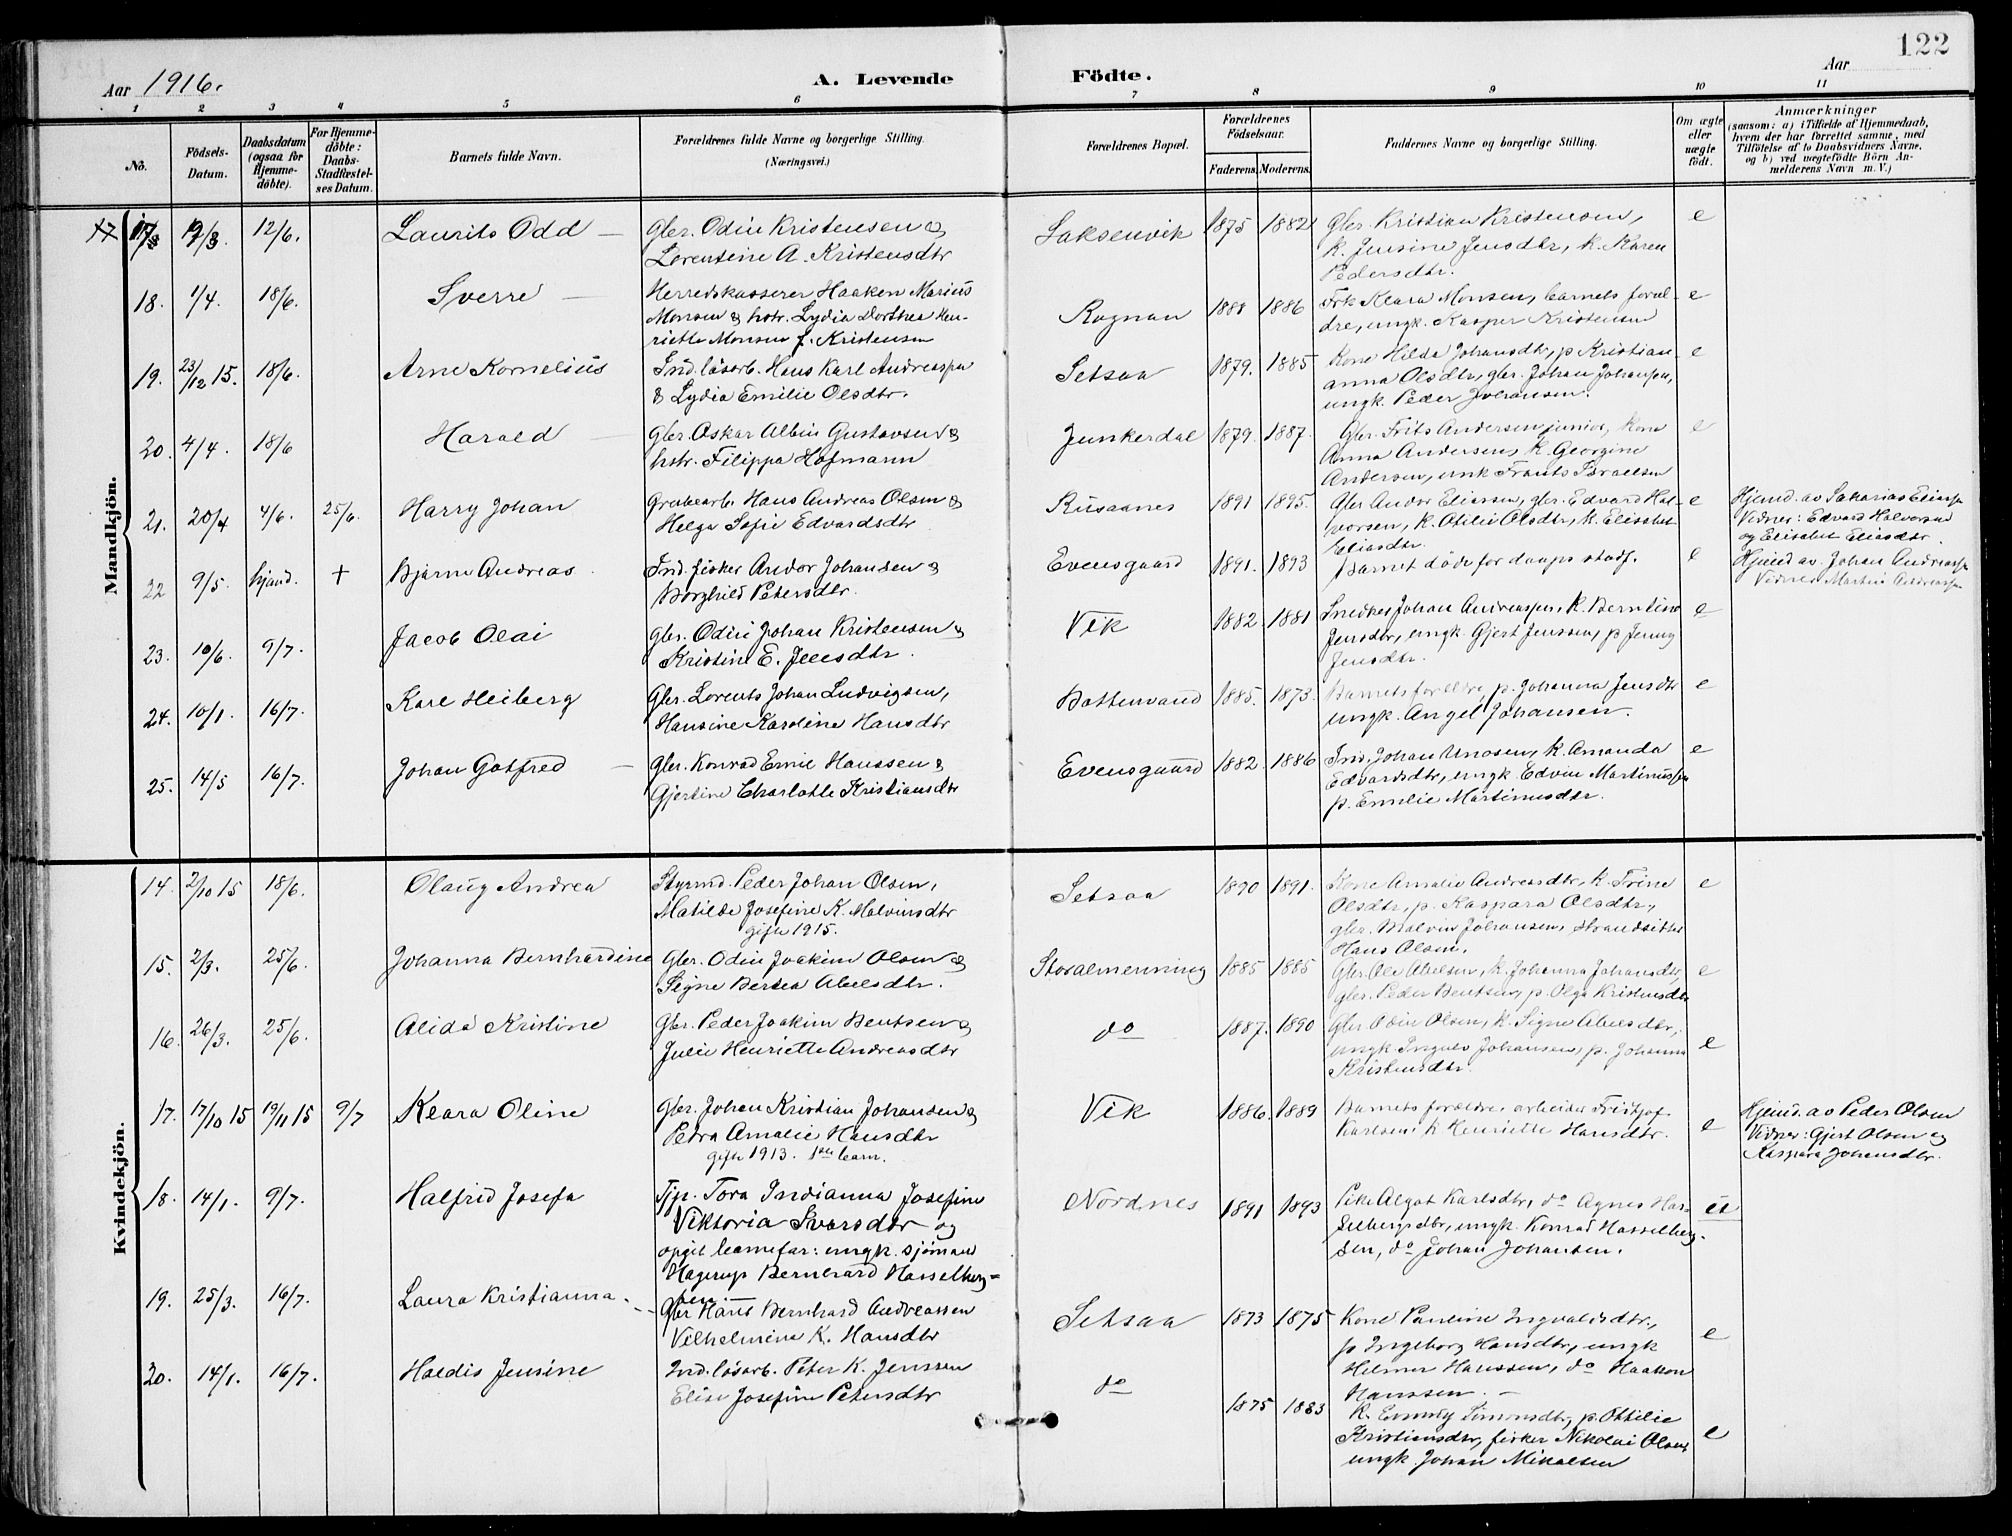 122
Aar 1916.
A. Levende Födte.
Aar
1 2 3 4 5 6 7 8 9 10 11
No.
Födsels-Datum.
Daabsdatum (ogsaa for Hjemme-döbte).
For Hjemme-döbte: Daabs-Stadfæstel-ses Datum.
Barnets fulde Navn.
Forældrenes fulde Navne og borgerlige Stilling.
(Næringsvei.)
Forældrenes Bopæl.
Forældrenes Födselsaar.
Faderens. Moderens.
Faddernes Navne og borgerlige Stilling.
Om ægte eller uægte födt.
Anmærkninger
(saasom: a) i Tilfælde af Hjemmedaab, hvem der har forrettet samme, med Tilföielse af to Daabsvidners Navne, og b) ved uægtefödte Börn An-melderens Navn m. V.)
Mandkjön.
17 19/3. 12/6. Laurits Odd — Gbr. Odin Kristensen & Saksenvik 1875 1882 Gbr. Kristian Kristensen, e
Lorentine A. Kristensdtr k. Jensine Jensdtr, k. Karen
Pedersdtr.
18. 1/4. 18/6. Sverre — Herredskasserer Haaken Marius Rognan 1888 1886 Frk Klara Monsen, barnets foræl- e
Monsen & hstr. Lydia Dorthea Hen- dre, ungk. Kasper Kristensen
riette Monsen f. Kristensen
19. 23/12 15. 18/6. Arne Kornelius Ind. løsarb. Hans Karl Andreassen Setsaa 1879. 1885 Kone Hilda Johansdtr, p Kristian- e
& Lydia Emilie Olsdtr. anna Olsdtr, gbr. Johan Johansen,
ungk. Peder Johansen.
20. 4/4. 18/6 Harald — Gbr. Oskar Albin Gustavsen & Junkerdal 1879. 1887. Gbr. Frits Andersen junior, kone e
hstr. Filippa Hofmann Anna Andersen, k. Georgine
Andersen, unk Frants Israelsen
21. 20/4 4/6. 25/6. Harry Johan Grubearb. Hans Andreas Olsen & Rusaanes 1891 1895. Gbr Andor Eliassen, gbr. Edvard Hal- e Hjemd. av Sakarias Eliassen
Helga Sofie Edvardsdtr vorsen, k. Otilie Olsdtr, k. Elisabet Vidner: Edvard Halvorsen
Eliasdtr. og Elisabet Eliasdtr.
22 9/5. hjemd. + Bjarne Andreas. Ind. fisker Andor Johansen & Evensgaard 1891. 1893 Barnet døde før daaps stadf. e Hjemd av. Johan Andreassen
Borghild Petersdtr. Vidner Martin Andreassen
23. 10/6. 9/7. Jacob Olai Gbr. Odin Johan Kristensen & Vik 1882. 1881 Snedker Johan Andreassen, k. Berntine e
Kristine E. Jensdtr. Jensdtr, ungk. Gjert Jenssen, p Jenny
Jensdtr.
24. 10/1. 16/7. Karl Heiberg Gbr. Lorents Johan Ludvigsen, Bottenvand 1885. 1873. Barnets forældre, p. Johanna Jensdtr e
Hansine Karoline Hansdtr ungk. Angel Johansen.
25. 14/5 16/7. Johan Gotfred — Gbr. Konrad Emil Hanssen & Evensgaard 1882. 1886 Ind. Johan Unosen, k. Amanda e
Gjertine Charlotte Kristiansdtr Edvardsdtr, ungk Edvin Martinussen
p. Emilie Martinusdtr.
Kvindekjön.
14. 2/10 15 18/6. Olaug Andrea Styrmd. Peder Johan Olsen, Setsaa 1890 1891. Kone Amalie Andreasdtr, k. Trine e
Matilde Josefine K. Malvinsdtr Olsdtr, p. Kaspara Olsdtr,
gift 1915. gbr. Malvin Johansen, strandsitter
Hans Olsen.
15. 2/3. 25/6. Johanna Bernhardine Gbr. Odin Joakim Olsen & Storalmenning 1885 1885 Gbr. Ole Abelsen, k. Johanna Johansdtr, e
Signe Bertea Abelsdtr. gbr. Peder Bentsen, p. Olga Kristensdtr
16. 26/3. 25/6. Alida Kristine Gbr. Peder Joakim Bentsen & do 1887. 1890 Gbr Odin Olsen, k. Signe Abelsdtr, e
Julie Henriette Andreasdtr ungk Ingolv Johansen, p. Johanna
Kristensdtr.
17. 17/10 15 19/11 15 9/7 Klara Oline Gbr. Johan Kristian Johansen & Vik 1886. 1889 Barnets forældre, arbeider Fritjof e Hjemd. av Peder Olsen
Petra Amalie Hansdtr Karlsen, k Henriette Hansdtr. Vidner: Gjert Olsen og
gift 1913. 1ste barn. Kaspara Johansdtr.
18. 14/1. 9/7. Halfrid Josefa Tjp. Tora Indianna Josefine Nordnes 1891 1893 Pike Algot Karlsdtr, do Agnes Has- u
Viktoria Svarsdtr og selbergsdtr, ungk. Konrad Hasselberg-
opgit barnefar: ungk. sjømand sen, do Johan Johansen.
Hagerup Bernhard Hasselberg-
sen.
19. 25/3. 16/7. Laura Kristianna. Gbr Hans Bernhard Andreassen Setsaa 1873 1875 Kone Pauline Ingvaldsdtr., e
Vilhelmine K. Hansdtr p Ingeborg Hansdtr, ungk
Helmer Hanssen, do Haakon
Hanssen. —
20. 14/1. 16/7. Haldis Jensine Ind. løsarb. Peter K. Jenssen do 1875 1883 K. Emmy Simonsdtr, p. Ottilie e
Elise Josefine Petersdtr Kristiansdtr, fisker Nikolai Olsen,
ungk. Johan Mikalsen